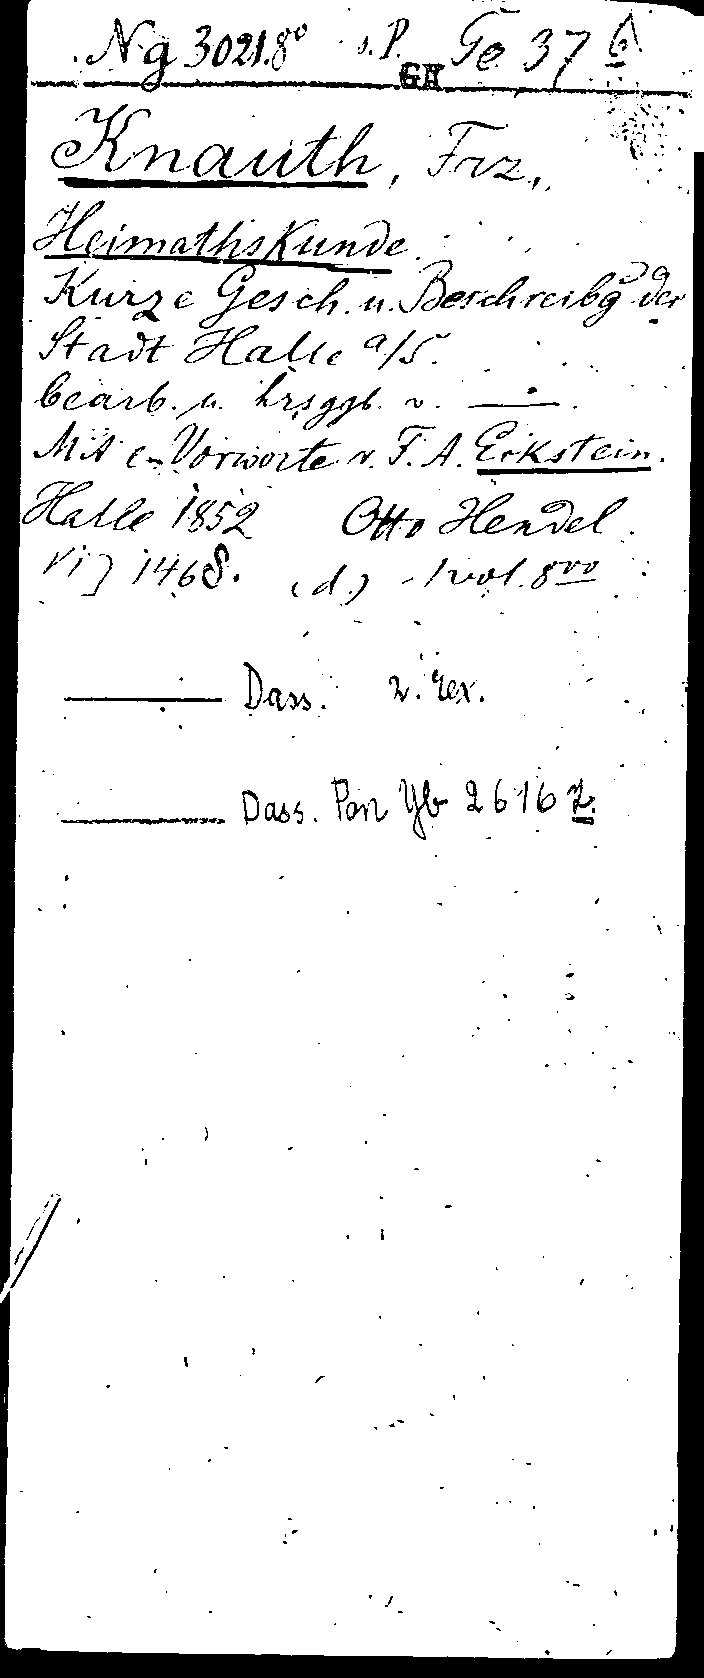 Ng 3021.8° s.P. Ge 37 6
GH
Knauth, Frz.,
Heimathskunde.
Kurze Gesch. u. Beschreibg der
Stadt Halle a/S.
bearb. u. hrsggb. v. ——.
Mit e. Vorworte v. F. A. Eckstein.
Halle 1852 Otto Hendel.
VI] 146 S. (d.) 1 vol. 8vo
—— Dass. 2. Ex.
—— Dass. Pon Yb 2616 Z.